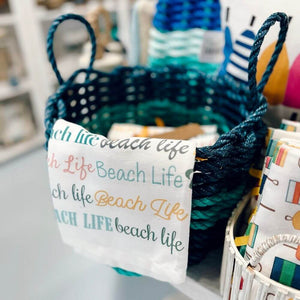 beach life beach life
Beach Life Beach Life
beach life Beach Life
BEACH LIFE beach life